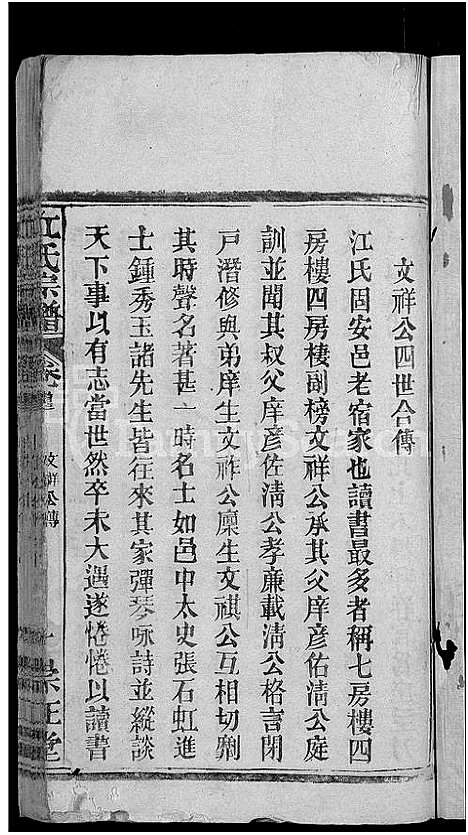 文祥公四世合傳
江氏固安邑老宿家也讀書最多者稱七房樓四
房樓四房樓副榜文祥公承其父庠彥佑淸公庭
訓並聞其叔父庠彥佐淸公孝廉載淸公格言閉
戶潛修與弟庠生文祚公廩生文祺公互相切劘
其時聲名著甚一時名士如邑中太史張石虹進
士鍾秀玉諸先生皆往來其家彈琴咏詩並縱談
天下事以有志當世然卒未大遇遂惓惓以讀書
江氏宗譜
文祥公傳